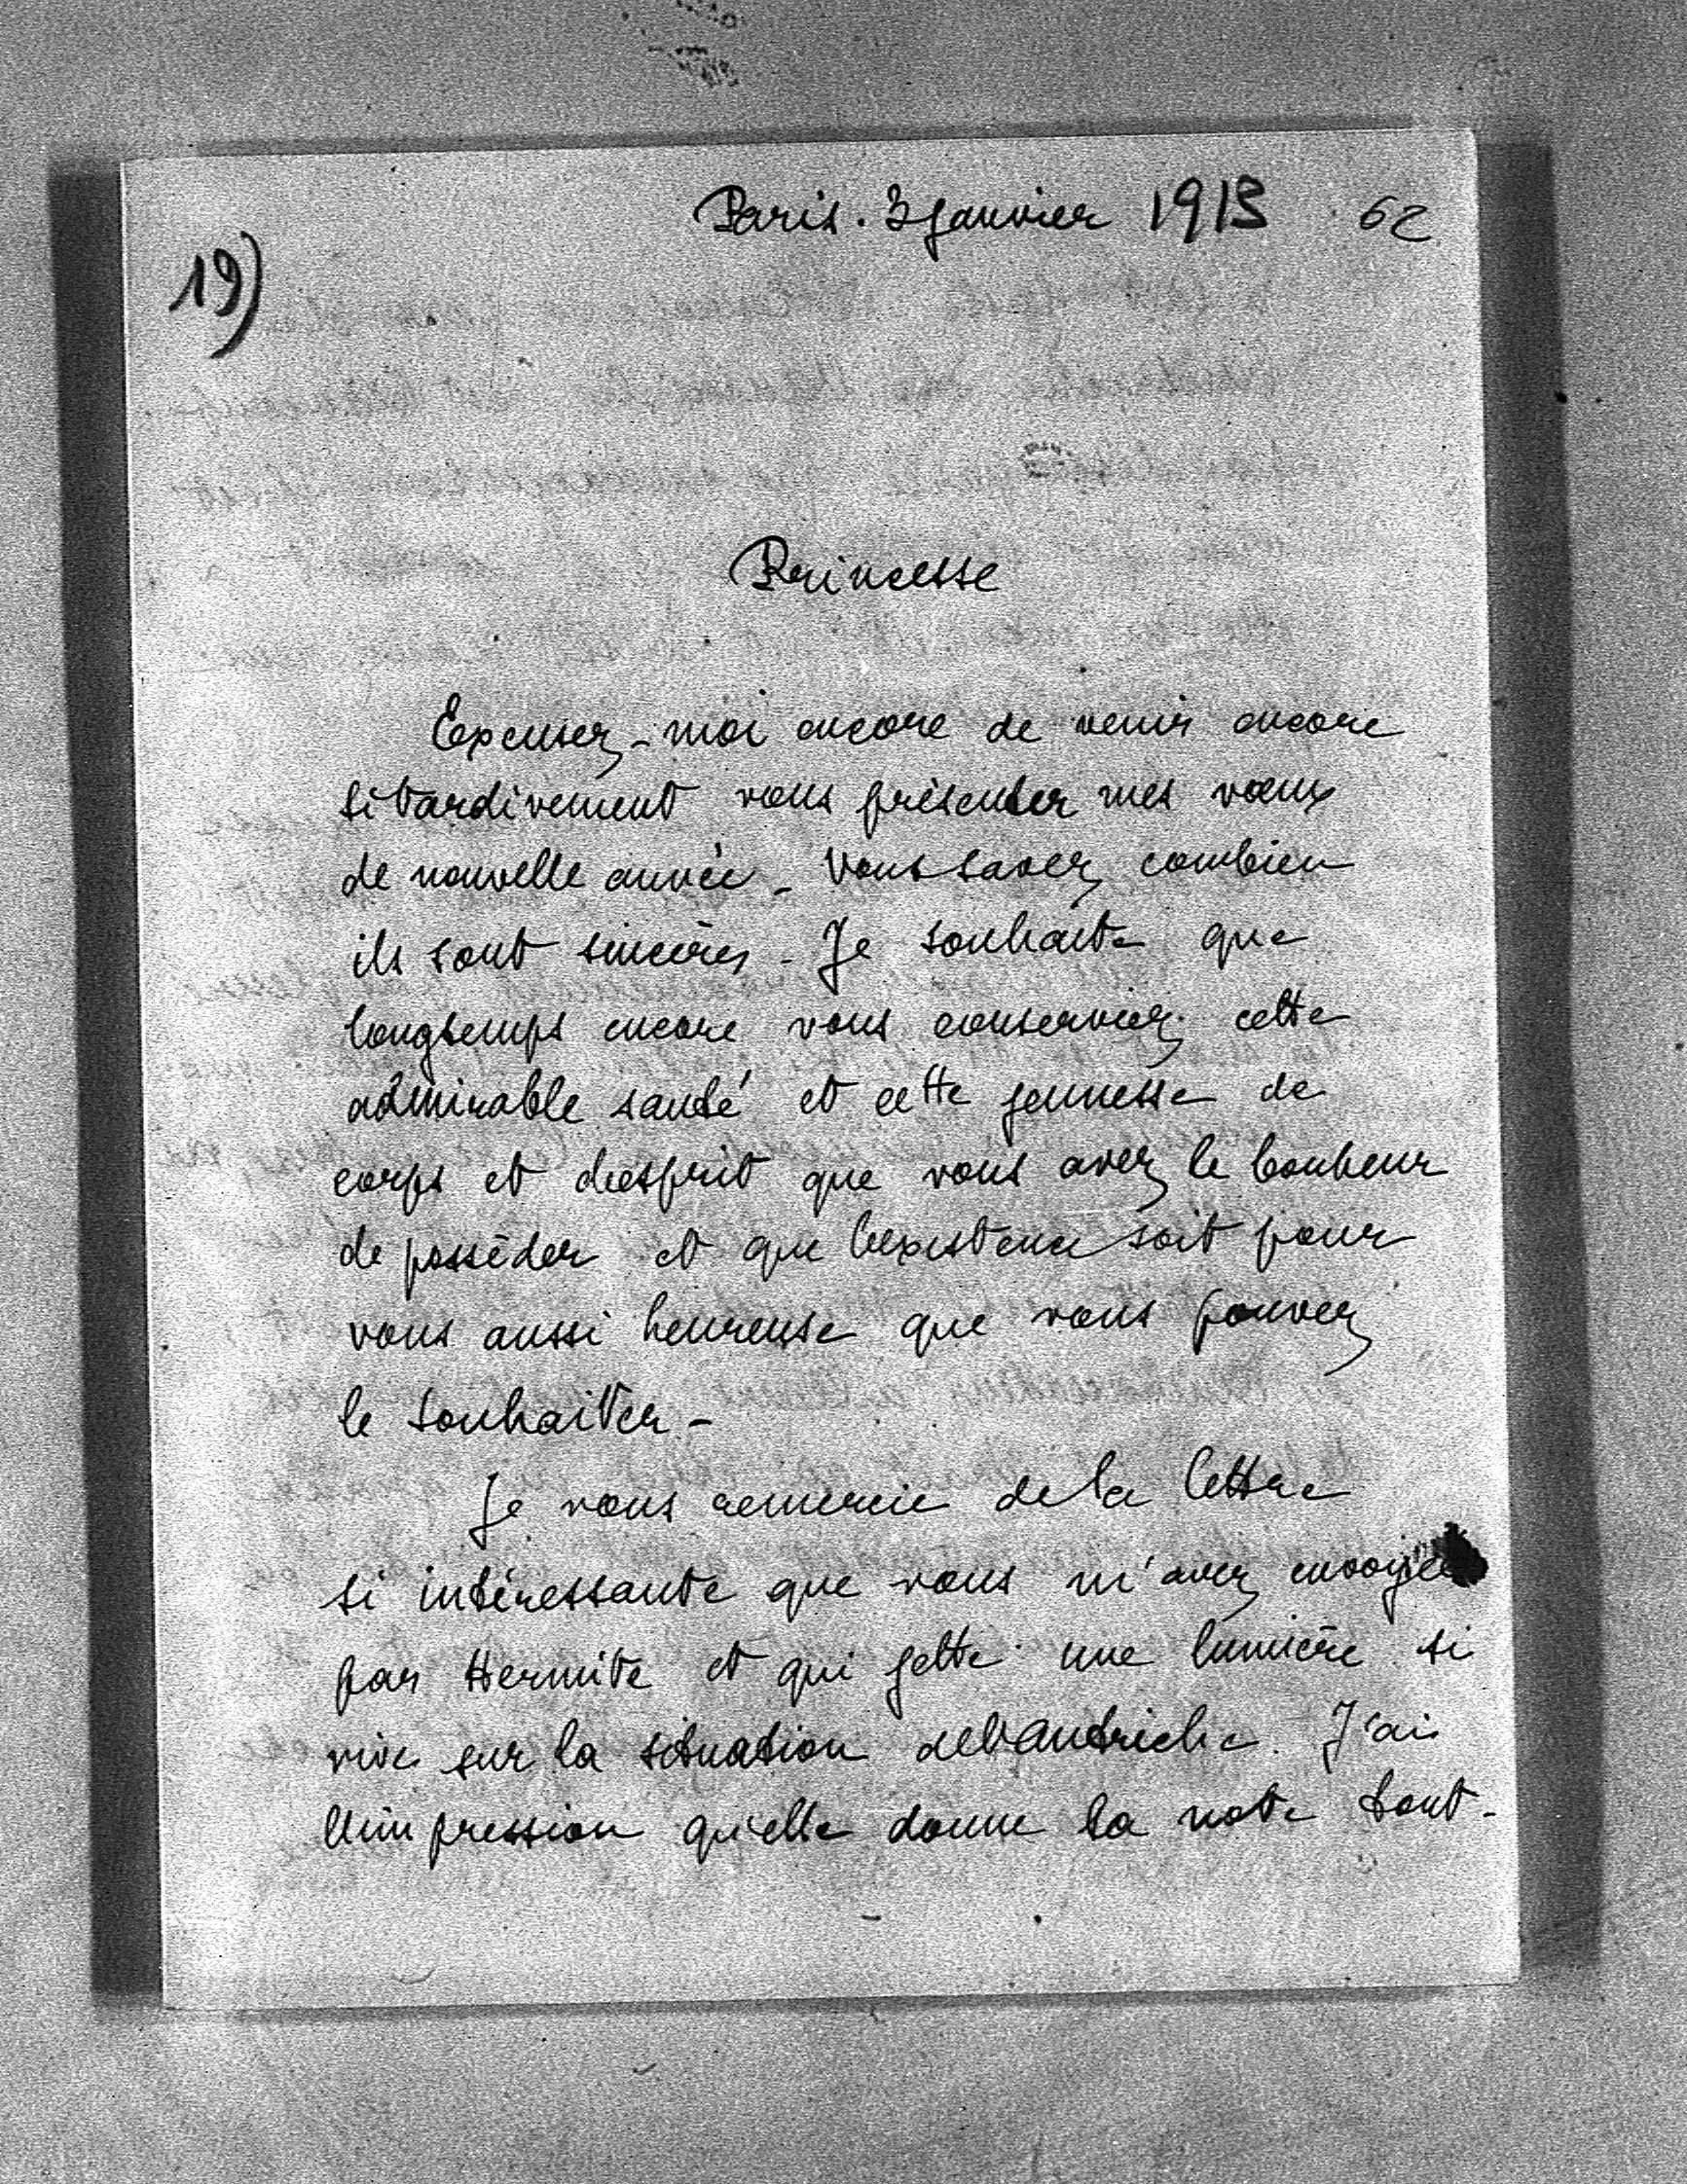 Paris. 3 Janvier 1913 62
19)
Princesse
Excusez-moi encore de venir encore
si tardivement vous présenter mes vœux
de nouvelle année - Vous savez combien
ils sont sincères - Je souhaite que
longtemps encore vous conserviez cette
admirable santé et cette jeunesse de
corps et d'esprit que vous avez le bonheur
de posséder et que l'existence soit pour
vous aussi heureuse que vous pouvez
le souhaiter -
Je vous remercie de la lettre
si intéressante que vous m'avez envoyée
par Hermite et qui jette une lumière si
vive sur la situation de l'Autriche. J'ai
l'impression qu'elle donne la note tout-